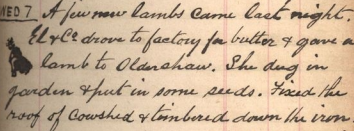 WED 7 A few new lambs came last night.
El & Co drove to factory for butter & gave a
lamb to Oldershaw. She dug in
garden & put in some seeds. Fixed the
roof of cowshed & timbered down the iron.